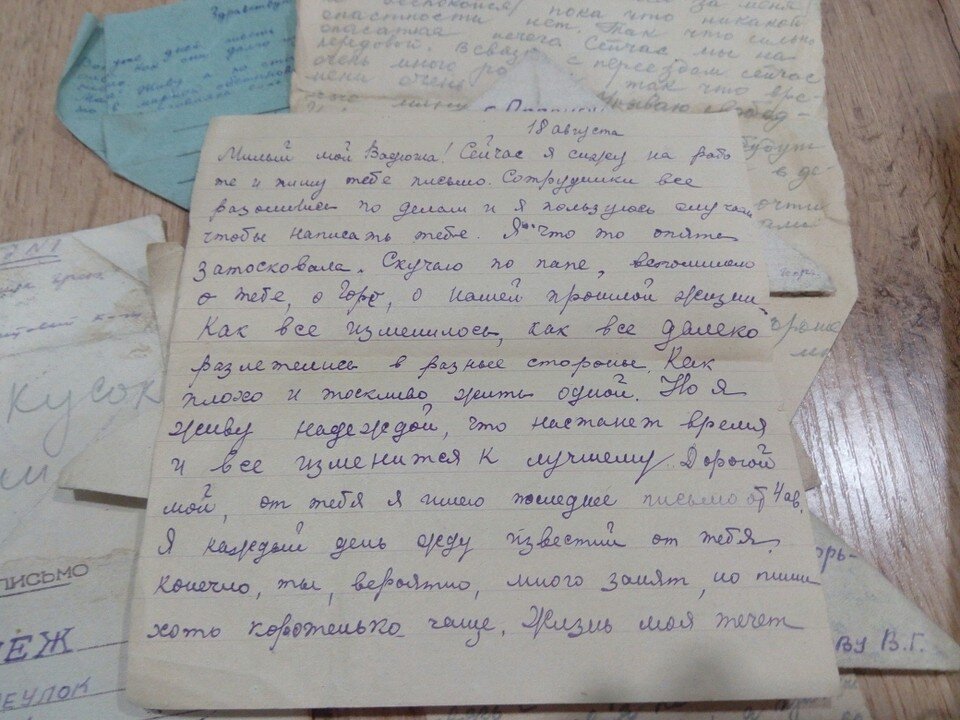 Здравствуй
за меня
пока что никакой
опасности нет. Так что сильно
нечего. Сейчас мы на
передовой. В связи с переездом сейчас
очень много ра
так что вре-
мени очень
18 августа
Милый мой Вадюша! Сейчас я сижу на рабо
те и пишу тебе письмо. Сотрудники все
разошлись по делам и я пользуюсь случаем
чтобы написать тебе. Я что то опять
затосковала. Скучаю по папе, вспоминаю
о тебе, о Горе, о нашей прошлой жизни
Как все изменилось, как все далеко
разлетелись в разные стороны. Как
плохо и тоскливо жить одной. Но я
живу надеждой, что настанет время
и все изменится к лучшему. Дорогой
мой, от тебя я имею последнее письмо от 4 ав.
Я каждый день жду известий от тебя.
Конечно, ты, вероятно, много занят, но пиши
хоть коротенько чаще. Жизнь моя течет
кусок
ПИСЬМО
ЕЖ
РЕУЛОК
орь-
ву В.Г.